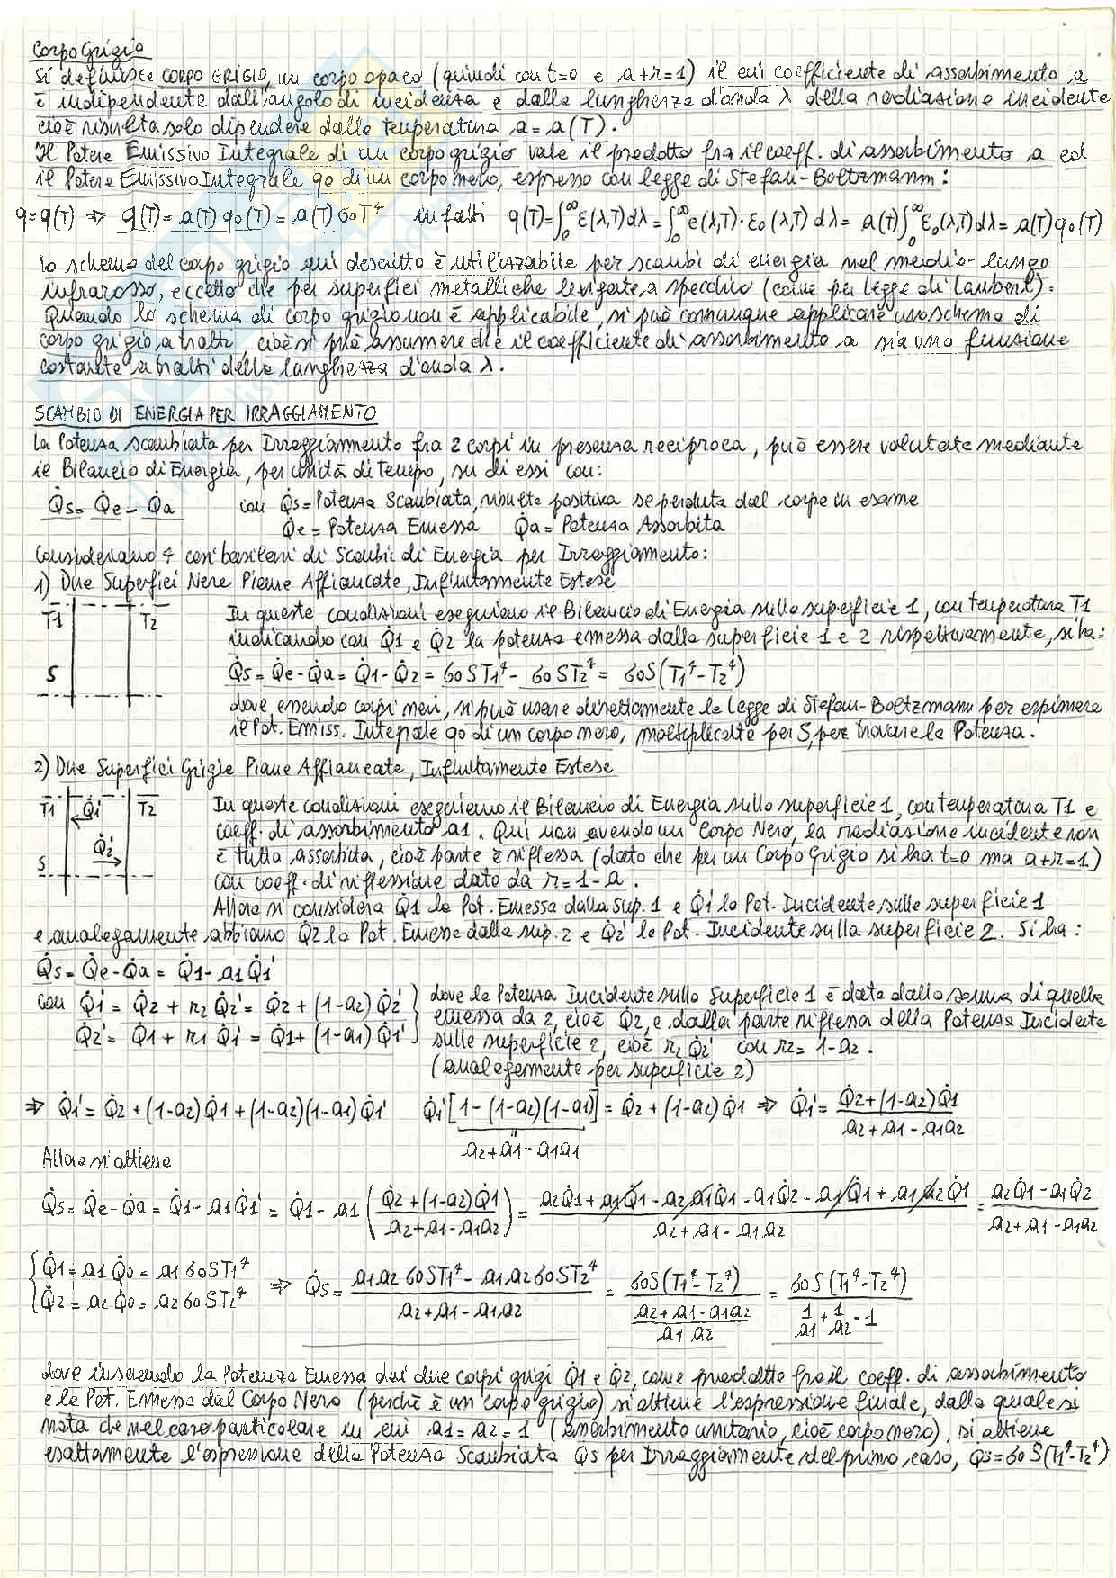 Corpo Grigio
Si definisce CORPO GRIGIO, un corpo opaco (quindi con t=0 e a+r=1) il cui coefficiente di assorbimento a
è indipendente dall'angolo di incidenza e dalla lunghezza d'onda λ della radiazione incidente
cioè risulta solo dipendere dalla temperatura a=a(T).
Il Potere Emissivo Integrale di un corpo grigio vale il prodotto fra il coeff. di assorbimento a ed
il Potere Emissivo Integrale q0 di un corpo nero, espresso con legge di Stefan-Boltzmann:
q=q(T) ⇒ q(T)=a(T)q0(T)=a(T)σ0T⁴ infatti q(T)=∫₀^∞ ε(λ,T)dλ=∫₀^∞ e(λ,T)·ε0(λ,T)dλ= a(T)∫₀^∞ ε0(λ,T)dλ=a(T)q0(T)
Lo schema del corpo grigio qui descritto è utilizzabile per scambi di energia nel medio-lungo
infrarosso, eccetto che per superfici metalliche levigate a specchio (come per legge di Lambert).
Quando lo schema di corpo grigio non è applicabile, si può comunque applicare uno schema di
corpo grigio a tratti, cioè si può assumere che il coefficiente di assorbimento a sia una funzione
costante a tratti della lunghezza d'onda λ.
SCAMBIO DI ENERGIA PER IRRAGGIAMENTO
La Potenza scambiata per Irraggiamento fra 2 corpi in presenza reciproca, può essere valutata mediante
il Bilancio di Energia, per unità di tempo, su di essi con:
Q̇s=Q̇e-Q̇a con Q̇s=Potenza Scambiata, risulta positiva se perduta dal corpo in esame
Q̇e=Potenza Emessa Q̇a=Potenza Assorbita
Consideriamo 4 casi basilari di Scambi di Energia per Irraggiamento:
1) Due Superfici Nere Piane Affiancate, Infinitamente Estese
T1 T2 S
In queste condizioni eseguiamo il Bilancio di Energia sulla superficie 1, con temperatura T1
indicando con Q̇1 e Q̇2 la potenza emessa dalla superficie 1 e 2 rispettivamente, si ha:
Q̇s=Q̇e-Q̇a=Q̇1-Q̇2=σ0ST1⁴-σ0ST2⁴=σ0S(T1⁴-T2⁴)
dove essendo corpi neri, si può usare direttamente la legge di Stefan-Boltzmann per esprimere
il Pot. Emiss. Integrale q0 di un corpo nero, moltiplicate per S, per trovare la Potenza.
2) Due Superfici Grigie Piane Affiancate, Infinitamente Estese
T1 Q̇1' T2 Q̇2' S
In queste condizioni eseguiamo il Bilancio di Energia sulla superficie 1, con temperatura T1 e
coeff. di assorbimento a1. Qui non avendo un Corpo Nero, la radiazione incidente non
è tutta assorbita, cioè parte è riflessa (dato che per un Corpo Grigio si ha t=0 ma a+r=1)
con coeff. di riflessione dato da r=1-a.
Allora si considera Q̇1 la Pot. Emessa dalla Sup. 1 e Q̇1' la Pot. Incidente sulla superficie 1
e analogamente abbiamo Q̇2 la Pot. Emessa dalla sup. 2 e Q̇2' la Pot. Incidente sulla superficie 2. Si ha:
Q̇s=Q̇e-Q̇a=Q̇1-a1Q̇1'
con Q̇1'=Q̇2+r2Q̇2'=Q̇2+(1-a2)Q̇2'
Q̇2'=Q̇1+r1Q̇1'=Q̇1+(1-a1)Q̇1'
dove la Potenza Incidente sulla Superficie 1 è data dalla somma di quella
emessa da 2, cioè Q̇2, e dalla parte riflessa della Potenza Incidente
sulla superficie 2, cioè r2Q̇2' con r2=1-a2.
(analogamente per superficie 2)
⇒ Q̇1'=Q̇2+(1-a2)Q̇1+(1-a2)(1-a1)Q̇1' Q̇1'[1-(1-a2)(1-a1)]=Q̇2+(1-a2)Q̇1 ⇒ Q̇1'=(Q̇2+(1-a2)Q̇1)/(a2+a1-a1a2)
a2+a1-a1a1
Allora si ottiene
Q̇s=Q̇e-Q̇a=Q̇1-a1Q̇1'=Q̇1-a1((Q̇2+(1-a2)Q̇1)/(a2+a1-a1a2))=(a2Q̇1+a1Q̇1-a2a1Q̇1-a1Q̇2-a1Q̇1+a1a2Q̇1)/(a2+a1-a1a2)=(a2Q̇1-a1Q̇2)/(a2+a1-a1a2)
{Q̇1=a1Q̇0=a1σ0ST1⁴
Q̇2=a2Q̇0=a2σ0ST2⁴ ⇒ Q̇s=(a1a2σ0ST1⁴-a1a2σ0ST2⁴)/(a2+a1-a1a2)=σ0S(T1⁴-T2⁴)/((a2+a1-a1a2)/(a1a2))=σ0S(T1⁴-T2⁴)/(1/a1+1/a2-1)
dove inserendo la Potenza Emessa dai due corpi grigi Q̇1 e Q̇2, come prodotto fra il coeff. di assorbimento
e la Pot. Emessa dal Corpo Nero (perché è un corpo grigio) si ottiene l'espressione finale, dalla quale si
nota che nel caso particolare in cui a1=a2=1 (assorbimento unitario, cioè corpo nero), si ottiene
esattamente l'espressione della Potenza Scambiata Q̇s per Irraggiamento del primo caso, Q̇s=σ0S(T1⁴-T2⁴)